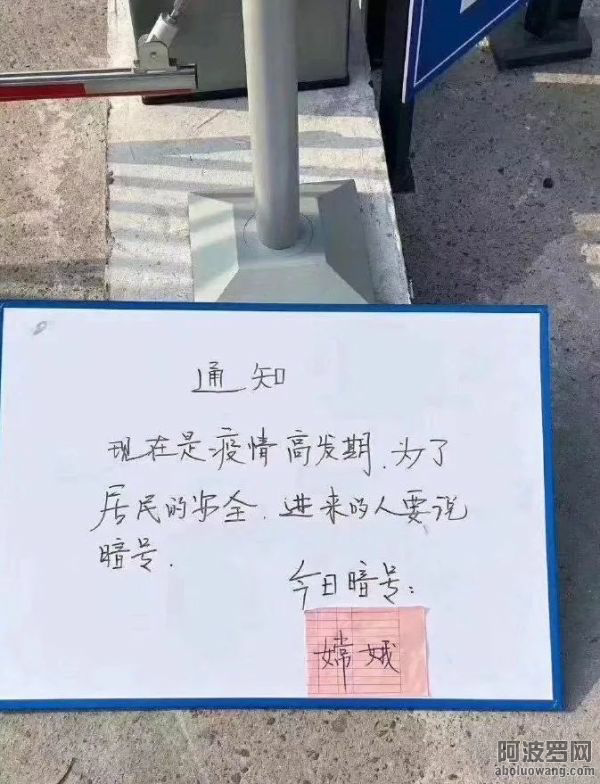 通知
现在是疫情高发期.为了
居民的安全.进来的人要说
暗号.
今日暗号:
嫦娥
阿波罗网
aboluowang.com